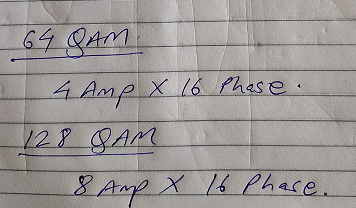 64 QAM
4 Amp X 16 Phase.
128 QAM
8 Amp X 16 Phase.